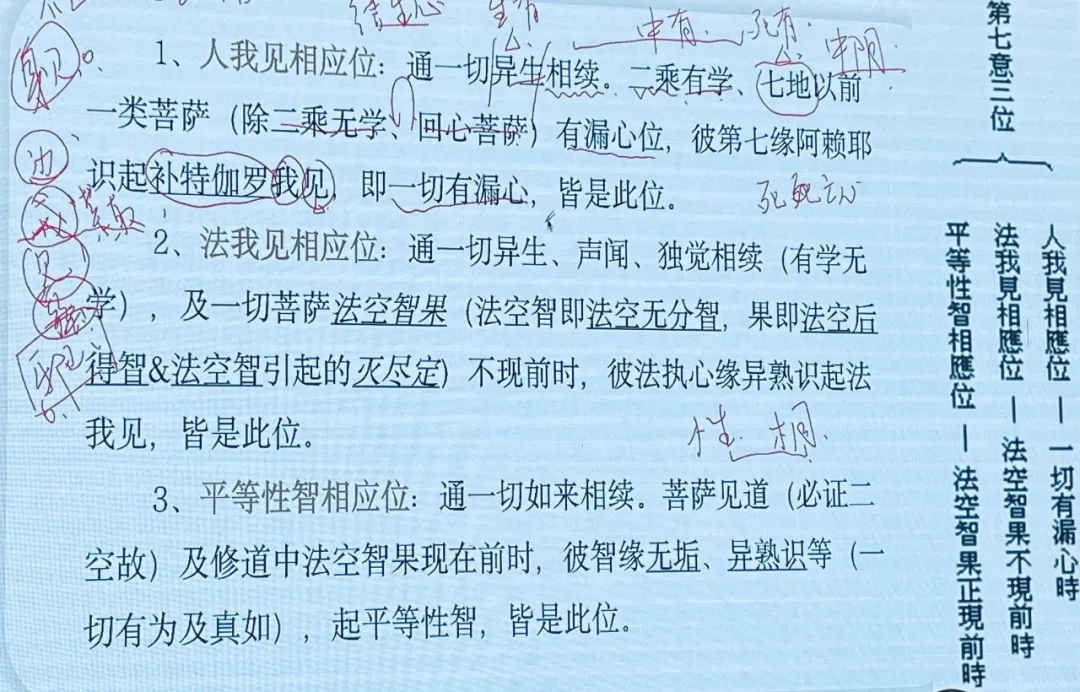 续生心 生有
中有 死有
中阴
1、人我见相应位：通一切异生相续。二乘有学、七地以前
一类菩萨（除二乘无学、回心菩萨）有漏心位，彼第七缘阿赖耶
识起补特伽罗我见，即一切有漏心，皆是此位。
2、法我见相应位：通一切异生、声闻、独觉相续（有学无
学），及一切菩萨法空智果（法空智即法空无分智，果即法空后
得智&法空智引起的灭尽定）不现前时，彼法执心缘异熟识起法
我见，皆是此位。
性 相
3、平等性智相应位：通一切如来相续。菩萨见道（必证二
空故）及修道中法空智果现在前时，彼智缘无垢、异熟识等（一
切有为及真如），起平等性智，皆是此位。
身见
边
见
第七意三位
人我見相應位 — 一切有漏心時
法我見相應位 — 法空智果不現前時
平等性智相應位 — 法空智果正現前時